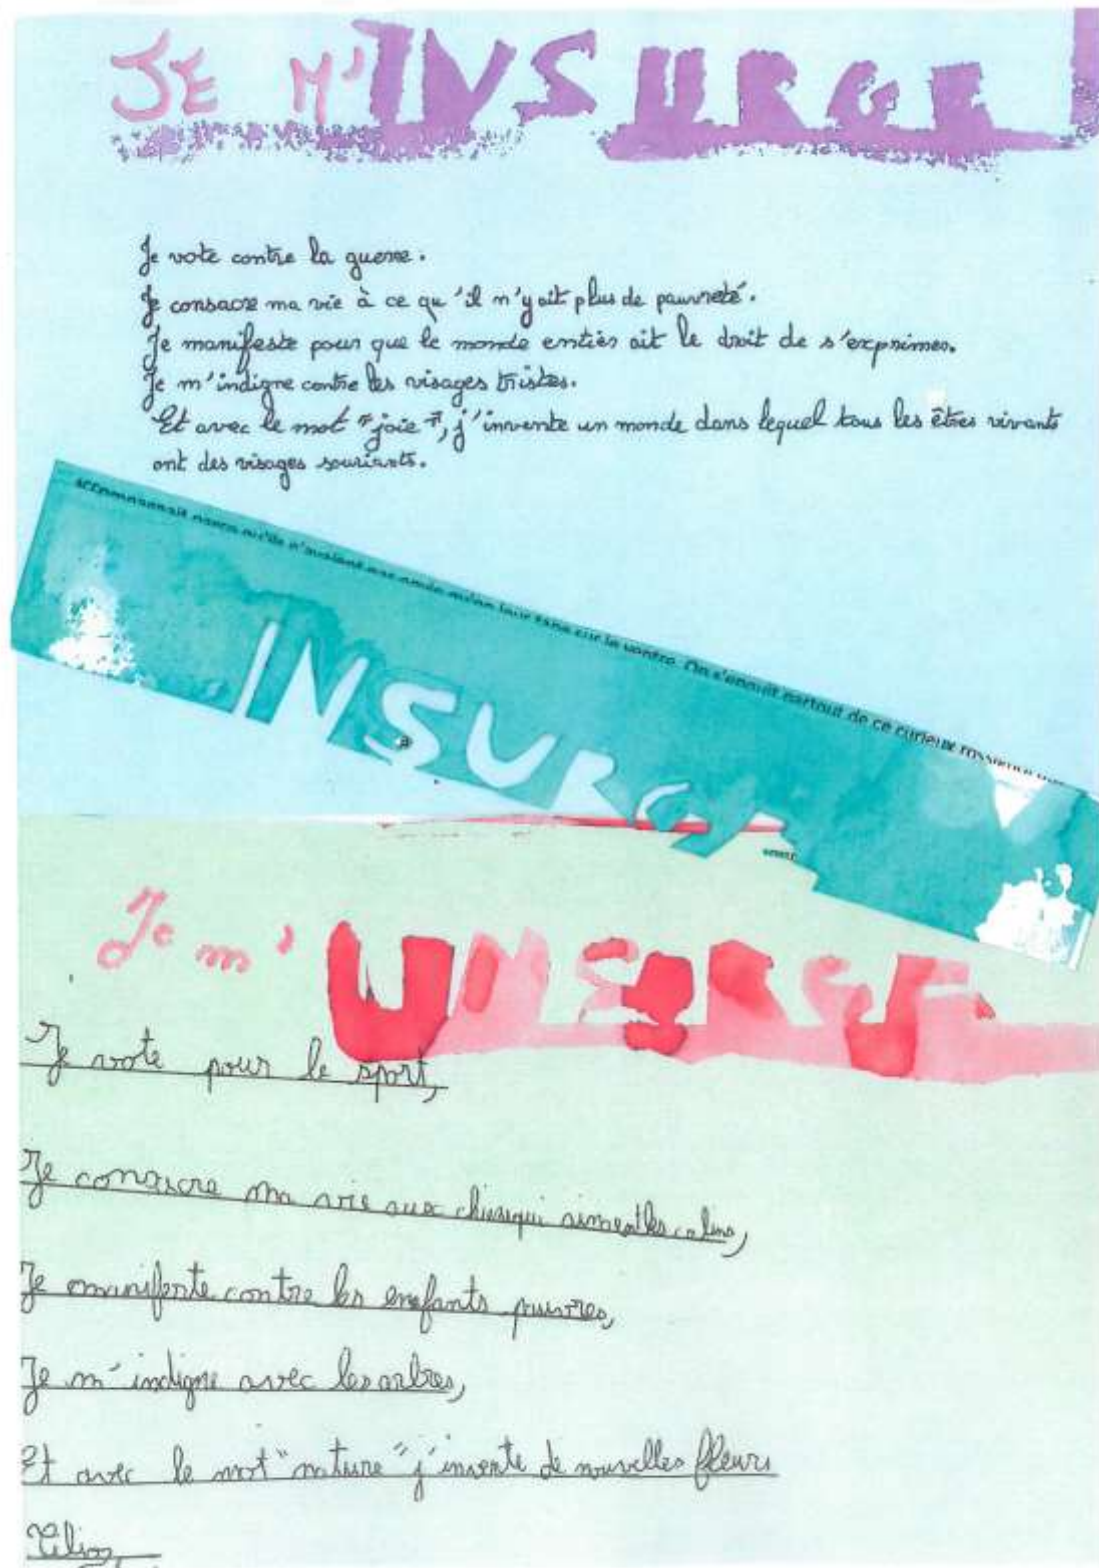 JE M'INSURGE
Je vote contre la guerre.
Je consacre ma vie à ce qu'il n'y ait plus de pauvreté.
Je manifeste pour que le monde entier ait le droit de s'exprimer.
Je m'indigne contre les visages tristes.
Et avec le mot "joie", j'invente un monde dans lequel tous les êtres vivants
ont des visages souriants.
accompagnait parce qu'ils n'avaient pas leur sur le ventre. On s'ennuit partout de ce curieux
INSURGE
Je m'
Je vote pour le sport,
Je consacre ma vie aux qui aiment les calins,
Je manifeste contre les enfants pauvres,
Je m'indigne avec les arbres,
Et avec le mot "nature" j'invente de nouvelles fleurs